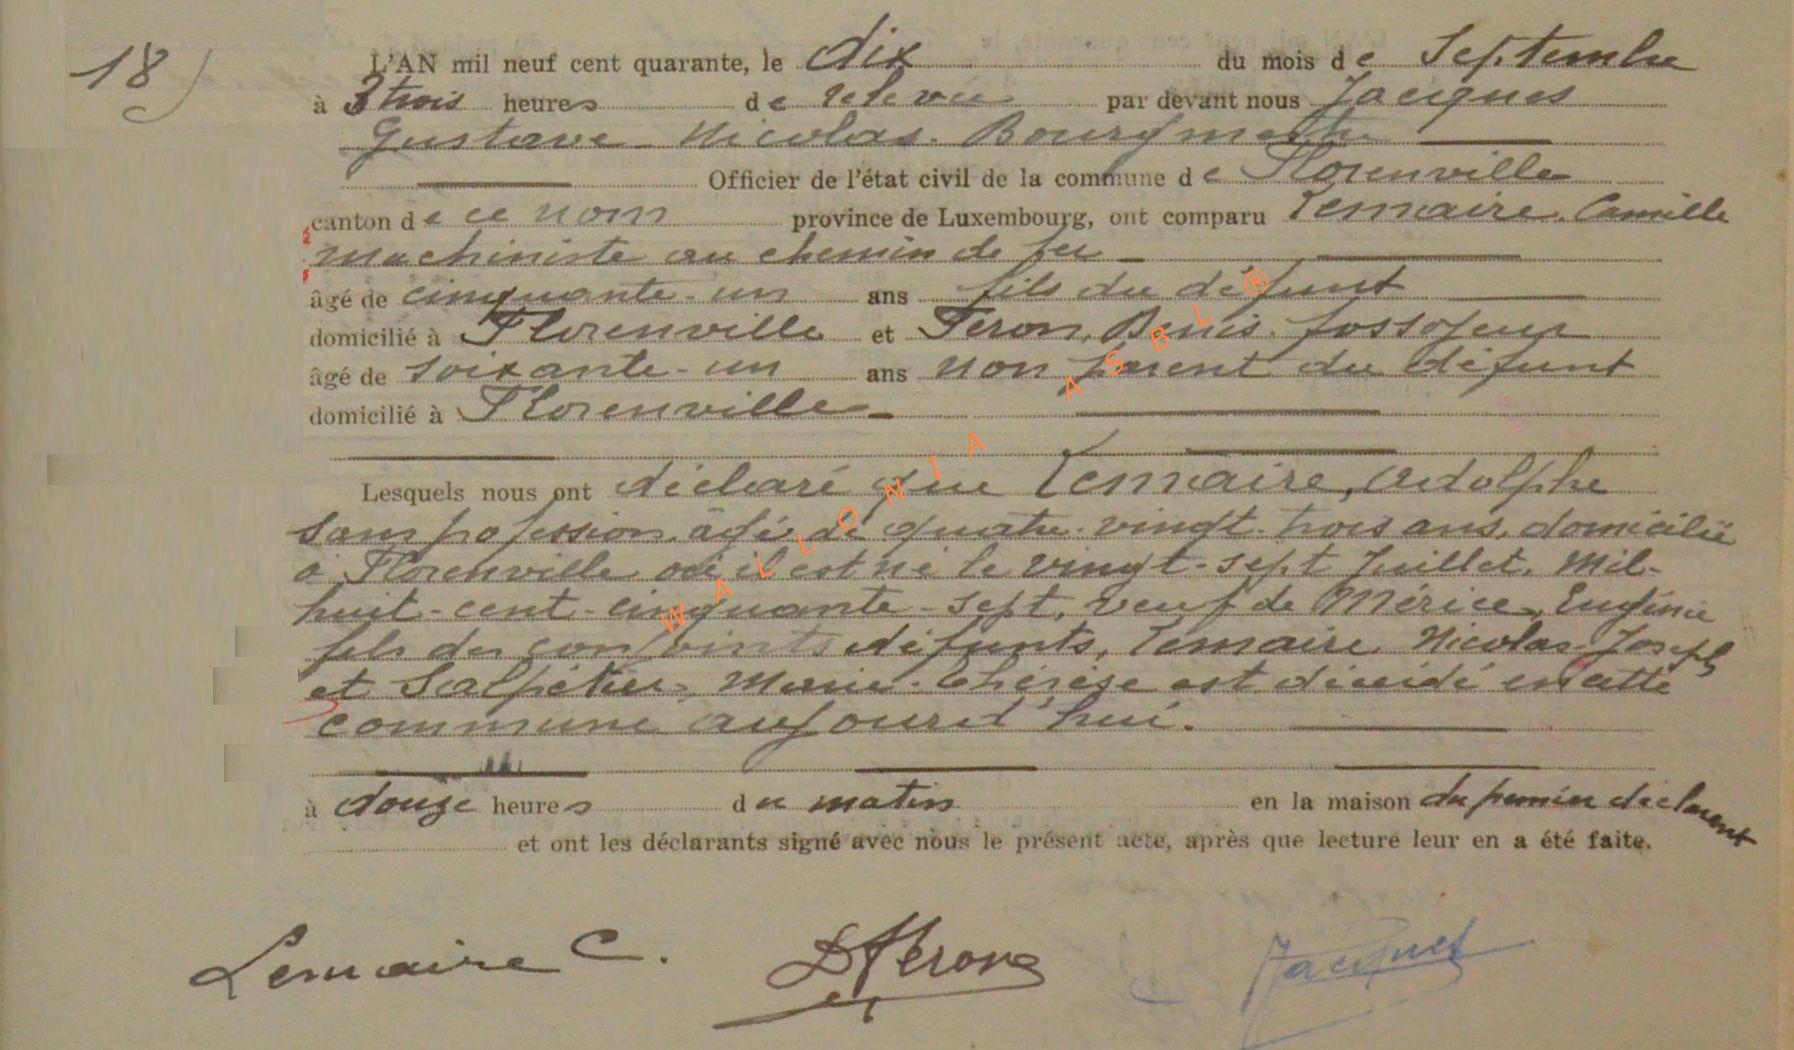 18)
L'AN mil neuf cent quarante, le dix du mois de Septembre
à 3 trois heures de relevée par devant nous Jacques
Gustave Nicolas Bourgmestre
Officier de l'état civil de la commune de Florenville
canton de ce nom province de Luxembourg, ont comparu Lemaire, Camille
machiniste au chemin de fer
âgé de cinquante-un ans fils du défunt
domicilié à Florenville et Feron, Denis fossoyeur
âgé de soixante-un ans non parent du défunt
domicilié à Florenville
Lesquels nous ont déclaré que Lemaire, Adolphe
sans profession, âgé de quatre-vingt-trois ans, domicilié
à Florenville où il est né le vingt-sept Juillet, Mil-
huit-cent-cinquante-sept, veuf de Mérice, Eugénie
fils des conjoints défunts, Lemaire, Nicolas Joseph
et Salpéteur, Marie-Thérèse est décédé en cette
commune aujourd'hui.
à douze heures du matin en la maison du premier déclarant
et ont les déclarants signé avec nous le présent acte, après que lecture leur en a été faite.
Lemaire C. D Feron Jacques
WALLONIA ASBL ®